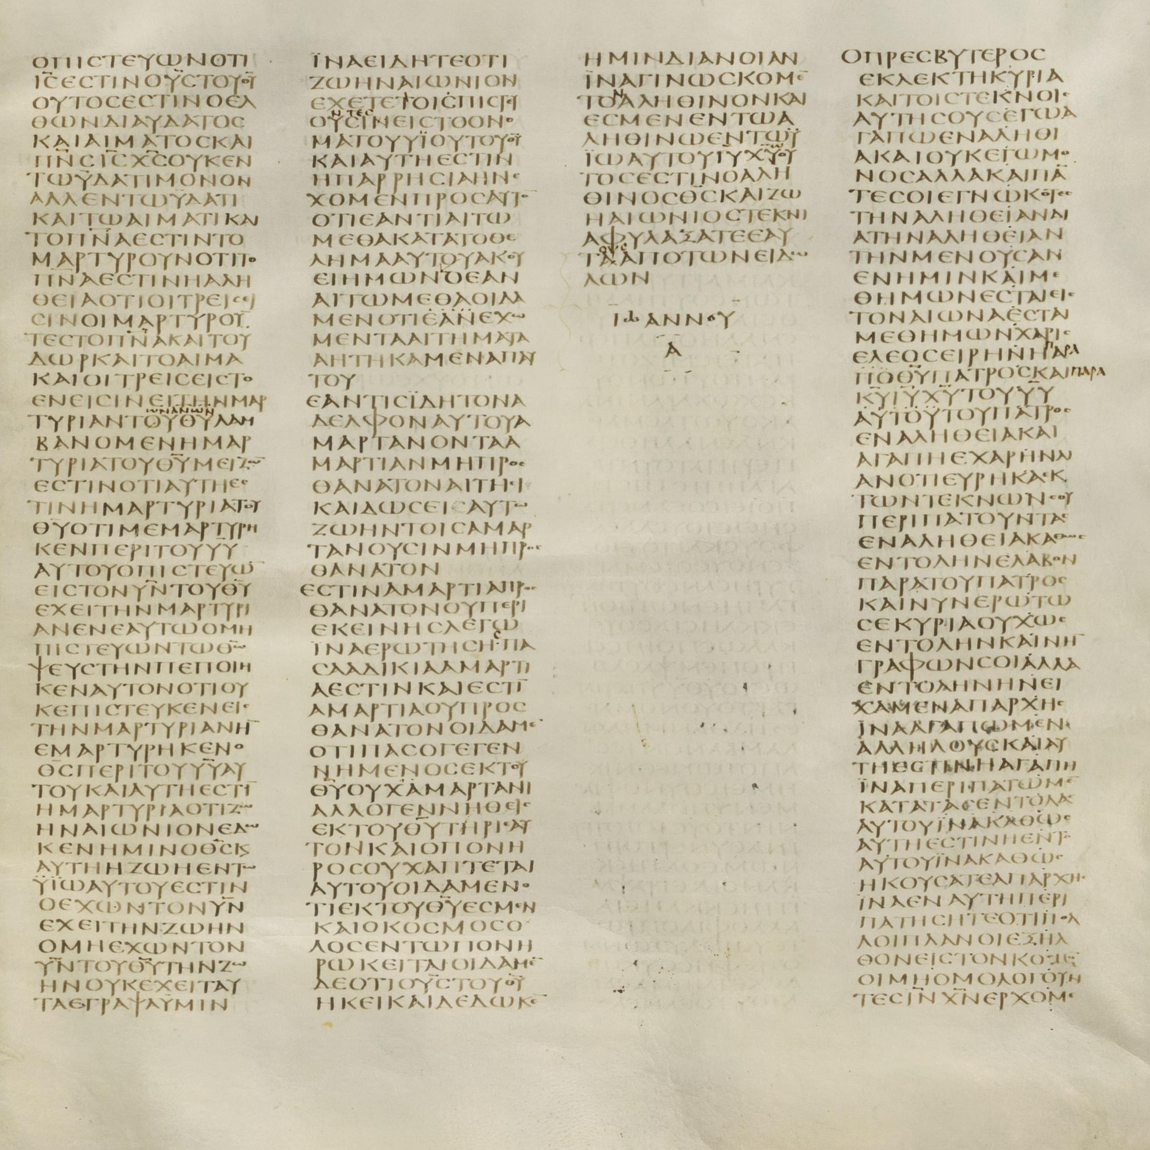 ΟΠΙCΤΕΥⲰΝΟΤΙ
ΙCΕCΤΙΝΟΥCΤΟΥΘΥ
ΟΥΤΟCΕCΤΙΝΟΕΛ
ΘⲰΝΔΙΑΥΔΑΤΟC
ΚΑΙΑΙΜΑΤΟCΚΑΙ
ΠΝCΙCΧCΟΥΚΕΝ
ΤⲰΥΔΑΤΙΜΟΝΟΝ
ΑΛΛΕΝΤⲰΥΔΑΤΙ
ΚΑΙΤⲰΑΙΜΑΤΙΚΑΙ
ΤΟΠΝΑΕCΤΙΝΤΟ
ΜΑΡΤΥΡΟΥΝΟΤΙΤΟ
ΠΝΑΕCΤΙΝΗΑΛΗ
ΘΕΙΑΟΤΙΟΙΤΡΕΙCΕΙ
CΙΝΟΙΜΑΡΤΥΡΟΥ
ΤΕCΤΟΠΝΑΚΑΙΤΟΥ
ΔⲰΡΚΑΙΤΟΑΙΜΑ
ΚΑΙΟΙΤΡΕΙCΕΙCΤΟ
ΕΝΕΙCΙΝΕΙΤΗΝΜΑΡ
ΤΥΡΙΑΝΤΟΥΘΥΛΑΜ
ΒΑΝΟΜΕΝΗΜΑΡ
ΤΥΡΙΑΤΟΥΘΥΜΕΙΖⲰ
ΕCΤΙΝΟΤΙΑΥΤΗΕC
ΤΙΝΗΜΑΡΤΥΡΙΑΤΟΥ
ΘΥΟΤΙΜΕΜΑΡΤΥΡΗ
ΚΕΝΠΕΡΙΤΟΥΥΥ
ΑΥΤΟΥΟΠΙCΤΕΥⲰ
ΕΙCΤΟΝΥΝΤΟΥΘΥ
ΕΧΕΙΤΗΝΜΑΡΤΥΡΙ
ΑΝΕΝΕΑΥΤⲰΟΜΗ
ΠΙCΤΕΥⲰΝΤⲰΘⲰ
ΨΕΥCΤΗΝΠΕΠΟΙΗ
ΚΕΝΑΥΤΟΝΟΤΙΟΥ
ΚΕΠΙCΤΕΥΚΕΝΕΙC
ΤΗΝΜΑΡΤΥΡΙΑΝΗ
ΕΜΑΡΤΥΡΗΚΕΝΟ
ΘCΠΕΡΙΤΟΥΥΥΑΥ
ΤΟΥΚΑΙΑΥΤΗΕCΤΙ
ΗΜΑΡΤΥΡΙΑΟΤΙΖⲰ
ΗΝΑΙⲰΝΙΟΝΕΔⲰ
ΚΕΝΗΜΙΝΟΘCΚΑΙ
ΑΥΤΗΗΖⲰΗΕΝΤⲰ
ΥΙⲰΑΥΤΟΥΕCΤΙΝ
ΟΕΧⲰΝΤΟΝΥΝ
ΕΧΕΙΤΗΝΖⲰΗΝ
ΟΜΗΕΧⲰΝΤΟΝ
ΥΝΤΟΥΘΥΤΗΝΖⲰ
ΗΝΟΥΚΕΧΕΙΤΑΥ
ΤΑΕΓΡΑΨΑΥΜΙΝ
ΙΝΑΕΙΔΗΤΕΟΤΙ
ΖⲰΗΝΑΙⲰΝΙΟΝ
ΕΧΕΤΕΤΟΙCΠΙCΤΕΥ
ΟΥCΙΝΕΙCΤΟΟΝΟ
ΜΑΤΟΥΥΙΟΥΤΟΥΘΥ
ΚΑΙΑΥΤΗΕCΤΙΝ
ΗΠΑΡΡΗCΙΑΗΝΕ
ΧΟΜΕΝΠΡΟCΑΥΤΟ
ΟΤΙΕΑΝΤΙΑΙΤⲰ
ΜΕΘΑΚΑΤΑΤΟΘΕ
ΛΗΜΑΑΥΤΟΥΑΚΟΥ
ΕΙΗΜⲰΝΟΕΑΝ
ΑΙΤⲰΜΕΘΑΟΙΔΑ
ΜΕΝΟΤΙΕΑΝΕΧⲰ
ΜΕΝΤΑΑΙΤΗΜΑΤΑ
ΑΗΤΗΚΑΜΕΝΑΠΑΥ
ΤΟΥ
ΕΑΝΤΙCΙΔΗΤΟΝΑ
ΔΕΛΦΟΝΑΥΤΟΥΑ
ΜΑΡΤΑΝΟΝΤΑΑ
ΜΑΡΤΙΑΝΜΗΠΡΟC
ΘΑΝΑΤΟΝΑΙΤΗCΙ
ΚΑΙΔⲰCΕΙΑΥΤⲰ
ΖⲰΗΝΤΟΙCΑΜΑΡ
ΤΑΝΟΥCΙΝΜΗΠΡΟC
ΘΑΝΑΤΟΝ
ΕCΤΙΝΑΜΑΡΤΙΑΠΡΟC
ΘΑΝΑΤΟΝΟΥΠΕΡΙ
ΕΚΕΙΝΗCΛΕΓⲰ
ΙΝΑΕΡⲰΤΗCΗΠΑ
CΑΑΔΙΚΙΑΑΜΑΡΤΙ
ΑΕCΤΙΝΚΑΙΕCΤΙ
ΑΜΑΡΤΙΑΟΥΠΡΟC
ΘΑΝΑΤΟΝΟΙΔΑΜΕ
ΟΤΙΠΑCΟΓΕΓΕΝ
ΝΗΜΕΝΟCΕΚΤΟΥ
ΘΥΟΥΧΑΜΑΡΤΑΝΙ
ΑΛΛΟΓΕΝΝΗΘΕΙC
ΕΚΤΟΥΘΥΤΗΡΙΑΥ
ΤΟΝΚΑΙΟΠΟΝΗ
ΡΟCΟΥΧΑΠΤΕΤΑΙ
ΑΥΤΟΥΟΙΔΑΜΕΝΟ
ΤΙΕΚΤΟΥΘΥΕCΜΕΝ
ΚΑΙΟΚΟCΜΟCΟ
ΛΟCΕΝΤⲰΠΟΝΗ
ΡⲰΚΕΙΤΑΙΟΙΔΑΜΕ
ΔΕΟΤΙΟΥCΤΟΥΘΥ
ΗΚΕΙΚΑΙΔΕΔⲰΚΕ
ΗΜΙΝΔΙΑΝΟΙΑΝ
ΙΝΑΓΙΝⲰCΚΟΜΕ
ΤΟΑΛΗΘΙΝΟΝΚΑΙ
ΕCΜΕΝΕΝΤⲰΑ
ΛΗΘΙΝⲰΕΝΤⲰΥ
ΙⲰΑΥΤΟΥΙΥΧΥΟΥ
ΤΟCΕCΤΙΝΟΑΛΗ
ΘΙΝΟCΘCΚΑΙΖⲰ
ΗΑΙⲰΝΙΟCΤΕΚΝΙ
ΑΦΥΛΑΞΑΤΕΕΑΥ
ΤΑΑΠΟΤⲰΝΕΙΔⲰ
ΛⲰΝ
ΙⲰΑΝΝΟΥ
Α
ΟΠΡΕCΒΥΤΕΡΟC
ΕΚΛΕΚΤΗΚΥΡΙΑ
ΚΑΙΤΟΙCΤΕΚΝΟΙC
ΑΥΤΗCΟΥCΕΓⲰΑ
ΓΑΠⲰΕΝΑΛΗΘΙ
ΑΚΑΙΟΥΚΕΓⲰΜΟ
ΝΟCΑΛΛΑΚΑΙΠΑ
ΤΕCΟΙΕΓΝⲰΚΟΤΕC
ΤΗΝΑΛΗΘΕΙΑΝΔΙ
ΑΤΗΝΑΛΗΘΕΙΑΝ
ΤΗΝΜΕΝΟΥCΑΝ
ΕΝΗΜΙΝΚΑΙΜΕ
ΘΗΜⲰΝΕCΤΑΙΕΙC
ΤΟΝΑΙⲰΝΑΕCΤΑ
ΜΕΘΗΜⲰΝΧΑΡΙC
ΕΛΕΟCΕΙΡΗΝΗΠΑΡΑ
ΠΟΘΥΠΑΤΡΟCΚΑΙΠΑΡΑ
ΚΥΙΥΧΥΤΟΥΥΥ
ΑΥΤΟΥΤΟΥΠΑΤΡΟC
ΕΝΑΛΗΘΕΙΑΚΑΙ
ΑΓΑΠΗΕΧΑΡΗΝΛΙ
ΑΝΟΤΙΕΥΡΗΚΑΕΚ
ΤⲰΝΤΕΚΝⲰΝCΟΥ
ΠΕΡΙΠΑΤΟΥΝΤΑC
ΕΝΑΛΗΘΕΙΑΚΑΘⲰC
ΕΝΤΟΛΗΝΕΛΑΒΟΝ
ΠΑΡΑΤΟΥΠΑΤΡΟC
ΚΑΙΝΥΝΕΡⲰΤⲰ
CΕΚΥΡΙΑΟΥΧⲰC
ΕΝΤΟΛΗΝΚΑΙΝΗ
ΓΡΑΦⲰΝCΟΙΑΛΛΑ
ΕΝΤΟΛΗΝΗΝΕΙ
ΧΑΜΕΝΑΠΑΡΧΗC
ΙΝΑΑΓΑΠⲰΜΕΝ
ΑΛΛΗΛΟΥCΚΑΙΑΥ
ΤΗΕCΤΙΝΗΑΓΑΠΗ
ΙΝΑΠΕΡΙΠΑΤⲰΜΕ
ΚΑΤΑΤΑCΕΝΤΟΛΑC
ΑΥΤΟΥΙΝΑΚΑΘⲰC
ΑΥΤΗΕCΤΙΝΗΕΝΤ
ΑΥΤΟΥΙΝΑΚΑΘⲰC
ΗΚΟΥCΑΤΕΑΠΑΡΧΗC
ΙΝΑΕΝΑΥΤΗΠΕΡΙ
ΠΑΤΗCΗΤΕΟΤΙΠΟΛ
ΛΟΙΠΛΑΝΟΙΕΞΗΛ
ΘΟΝΕΙCΤΟΝΚΟCΜΟ
ΟΙΜΗΟΜΟΛΟΓΟΥΝ
ΤΕCΙΝΧΝΕΡΧΟΜΕ